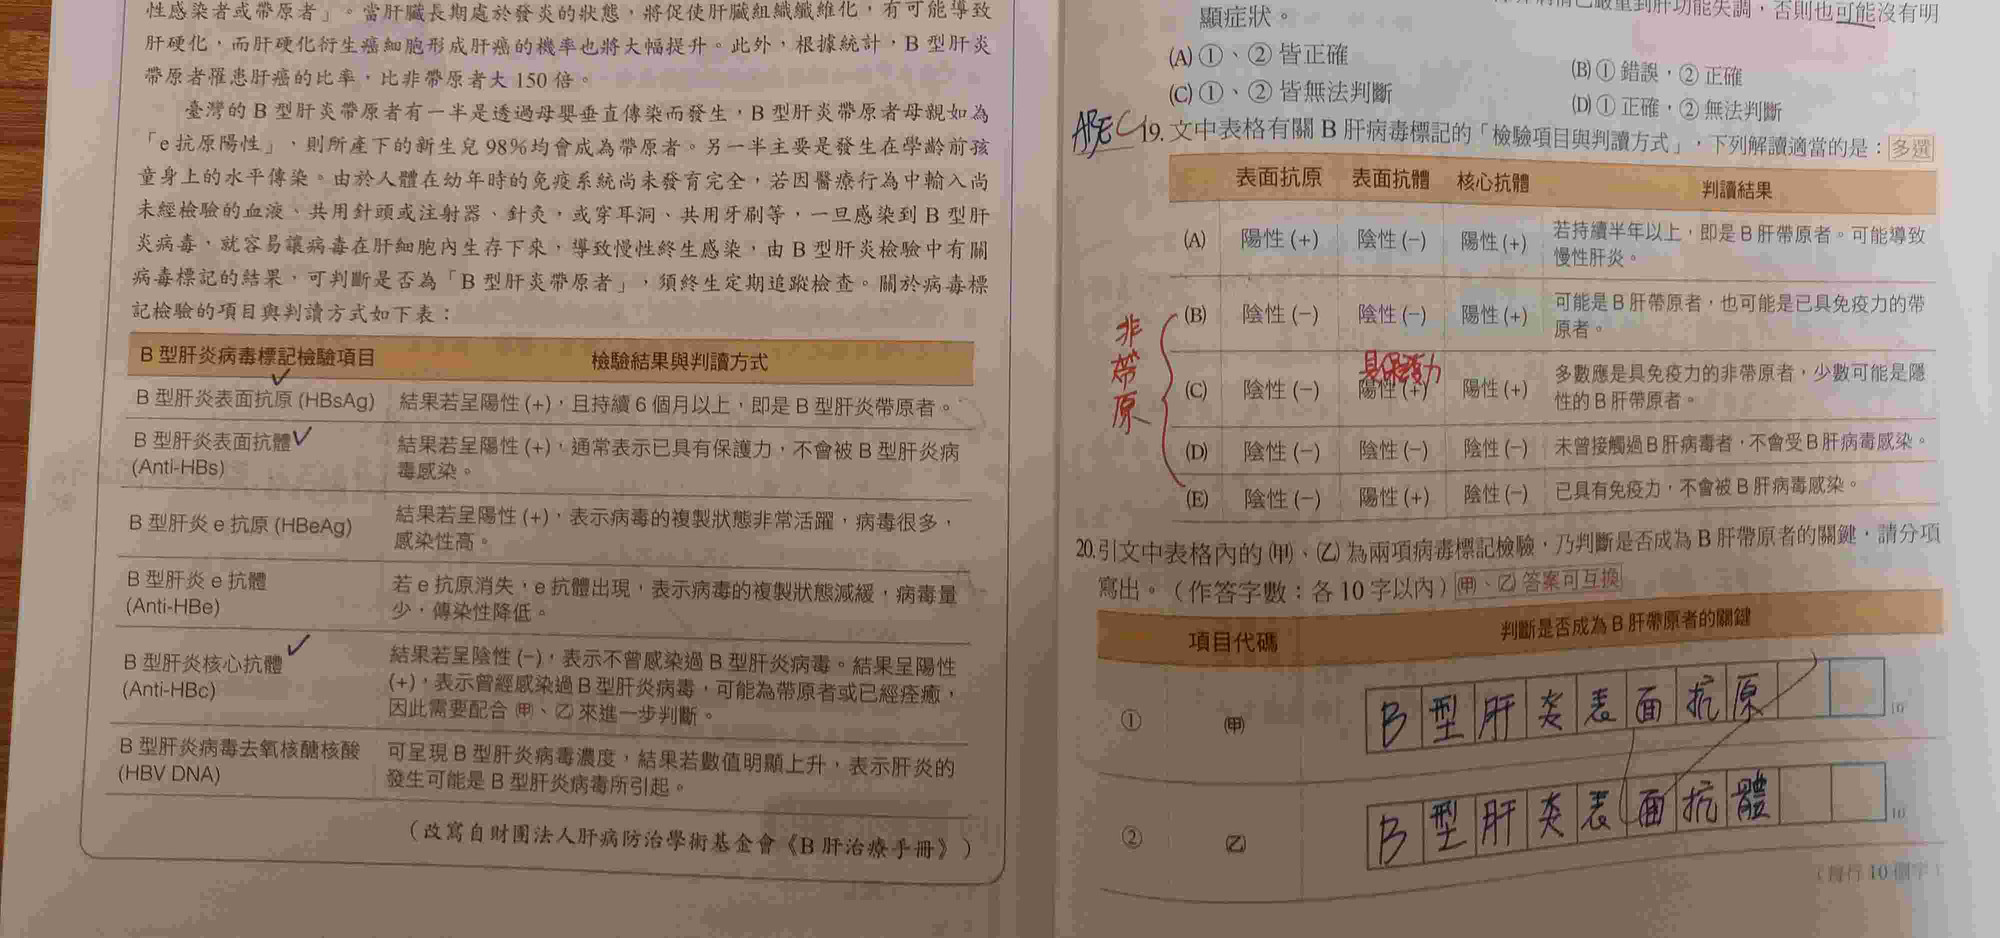 性感染者或帶原者」。當肝臟長期處於發炎的狀態，將促使肝臟組織纖維化，有可能導致
肝硬化，而肝硬化衍生癌細胞形成肝癌的機率也將大幅提升。此外，根據統計，B 型肝炎
帶原者罹患肝癌的比率，比非帶原者大 150 倍。
臺灣的 B 型肝炎帶原者有一半是透過母嬰垂直傳染而發生，B 型肝炎帶原者母親如為
「e 抗原陽性」，則所產下的新生兒 98%均會成為帶原者。另一半主要是發生在學齡前孩
童身上的水平傳染。由於人體在幼年時的免疫系統尚未發育完全，若因醫療行為中輸入尚
未經檢驗的血液、共用針頭或注射器、針灸，或穿耳洞、共用牙刷等，一旦感染到 B 型肝
炎病毒，就容易讓病毒在肝細胞內生存下來，導致慢性終生感染，由 B 型肝炎檢驗中有關
病毒標記的結果，可判斷是否為「B 型肝炎帶原者」，須終生定期追蹤檢查。關於病毒標
記檢驗的項目與判讀方式如下表：
B 型肝炎病毒標記檢驗項目 檢驗結果與判讀方式
B 型肝炎表面抗原 (HBsAg) 結果若呈陽性 (+)，且持續 6 個月以上，即是 B 型肝炎帶原者。
B 型肝炎表面抗體
(Anti-HBs)
結果若呈陽性 (+)，通常表示已具有保護力，不會被 B 型肝炎病
毒感染。
B 型肝炎 e 抗原 (HBeAg)
結果若呈陽性 (+)，表示病毒的複製狀態非常活躍，病毒很多，
感染性高。
B 型肝炎 e 抗體
(Anti-HBe)
若 e 抗原消失，e 抗體出現，表示病毒的複製狀態減緩，病毒量
少，傳染性降低。
B 型肝炎核心抗體
(Anti-HBc)
結果若呈陰性 (−)，表示不曾感染過 B 型肝炎病毒。結果呈陽性
(+)，表示曾經感染過 B 型肝炎病毒，可能為帶原者或已經痊癒，
因此需要配合 ㊙甲、乙 來進一步判斷。
B 型肝炎病毒去氧核醣核酸
(HBV DNA)
可呈現 B 型肝炎病毒濃度，結果若數值明顯上升，表示肝炎的
發生可能是 B 型肝炎病毒所引起。
（改寫自財團法人肝病防治學術基金會《B 肝治療手冊》）
已嚴重到肝功能失調，否則也可能沒有明
顯症狀。
(A) ①、② 皆正確
(B) ① 錯誤，② 正確
(C) ①、② 皆無法判斷
(D) ① 正確，② 無法判斷
19. 文中表格有關 B 肝病毒標記的「檢驗項目與判讀方式」，下列解讀適當的是：多選
表面抗原 表面抗體 核心抗體 判讀結果
(A) 陽性 (+) 陰性 (−) 陽性 (+) 若持續半年以上，即是 B 肝帶原者。可能導致
慢性肝炎。
(B) 陰性 (−) 陰性 (−) 陽性 (+) 可能是 B 肝帶原者，也可能是已具免疫力的帶
原者。
非帶原
(C) 陰性 (−) 陽性 (+) 陽性 (+) 多數應是具免疫力的非帶原者，少數可能是隱
性的 B 肝帶原者。
(D) 陰性 (−) 陰性 (−) 陰性 (−) 未曾接觸過 B 肝病毒者，不會受 B 肝病毒感染。
(E) 陰性 (−) 陽性 (+) 陰性 (−) 已具有免疫力，不會被 B 肝病毒感染。
20. 引文中表格內的 (甲)、(乙) 為兩項病毒標記檢驗，乃判斷是否成為 B 肝帶原者的關鍵，請分項
寫出。（作答字數：各 10 字以內）(甲)、(乙) 答案可互換
項目代碼 判斷是否成為 B 肝帶原者的關鍵
① (甲) B型肝炎表面抗原 10
② (乙) B型肝炎表面抗體 10